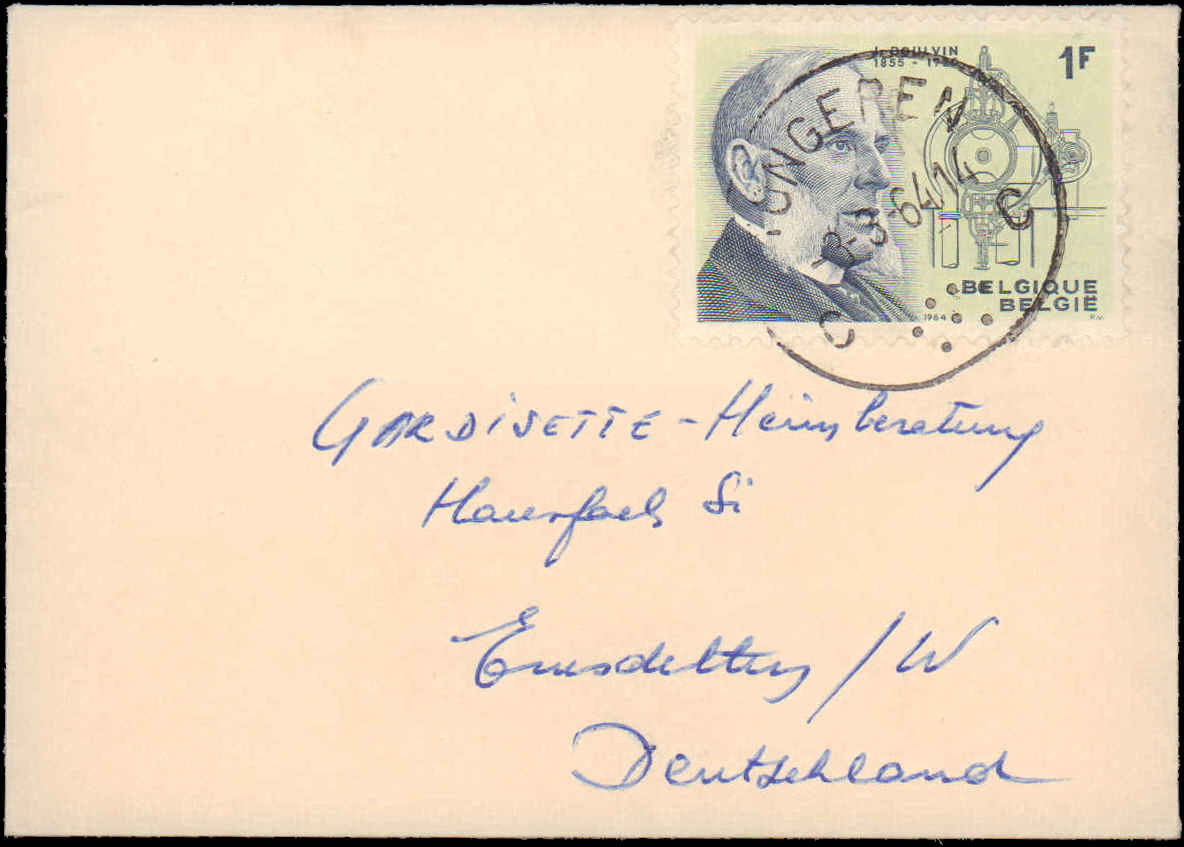 J. BOULVIN
1855 - 1920
1F
TONGEREN
-3-64 14
C C
BELGIQUE
BELGIË
1964
GARDISETTE - Heimberatung
Hausfach Si
Emsdetten / W
Deutschland